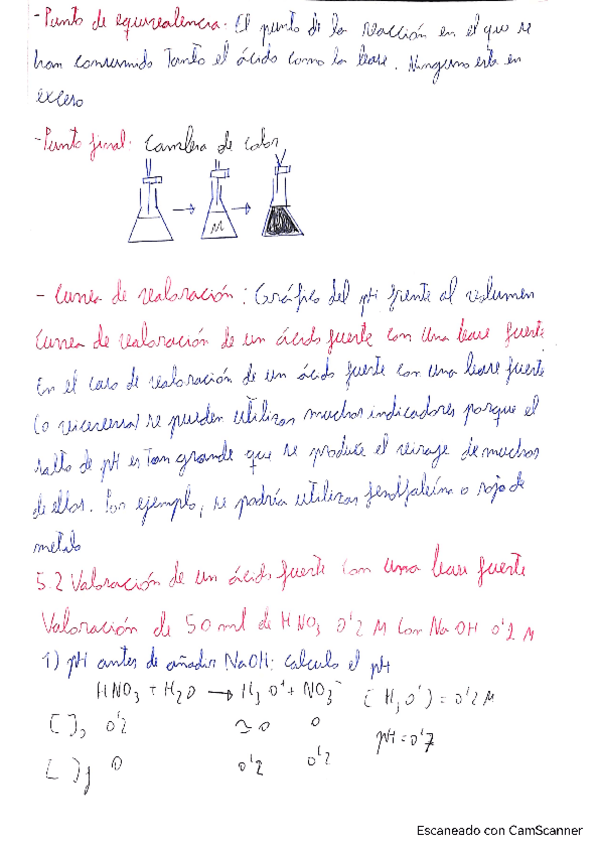 -Punto de equivalencia. El punto de la reacción en el que se
han consumido tanto el ácido como la base. Ninguno está en
exceso
-Punto final: Cambia de color
- Curva de valoración: Gráfico del pH frente al volumen
Curva de valoración de un ácido fuerte con una base fuerte
En el caso de valoración de un ácido fuerte con una base fuerte
(o viceversa) se pueden utilizar muchos indicadores porque el
salto de pH es tan grande que se produce el viraje de muchos
de ellos. Por ejemplo, se podría utilizar fenolftaleína o rojo de
metilo
5.2 Valoración de un ácido fuerte con una base fuerte
Valoración de 50 ml de HNO3 0'2 M con NaOH 0'2 M
1) pH antes de añadir NaOH: calculo el pH
HNO3 + H2O → H3O⁺ + NO3⁻ [H3O⁺] = 0'2 M
[ ]0 0'2 ≃0 0 pH = 0'7
[ ]f 0 0'2 0'2
Escaneado con CamScanner